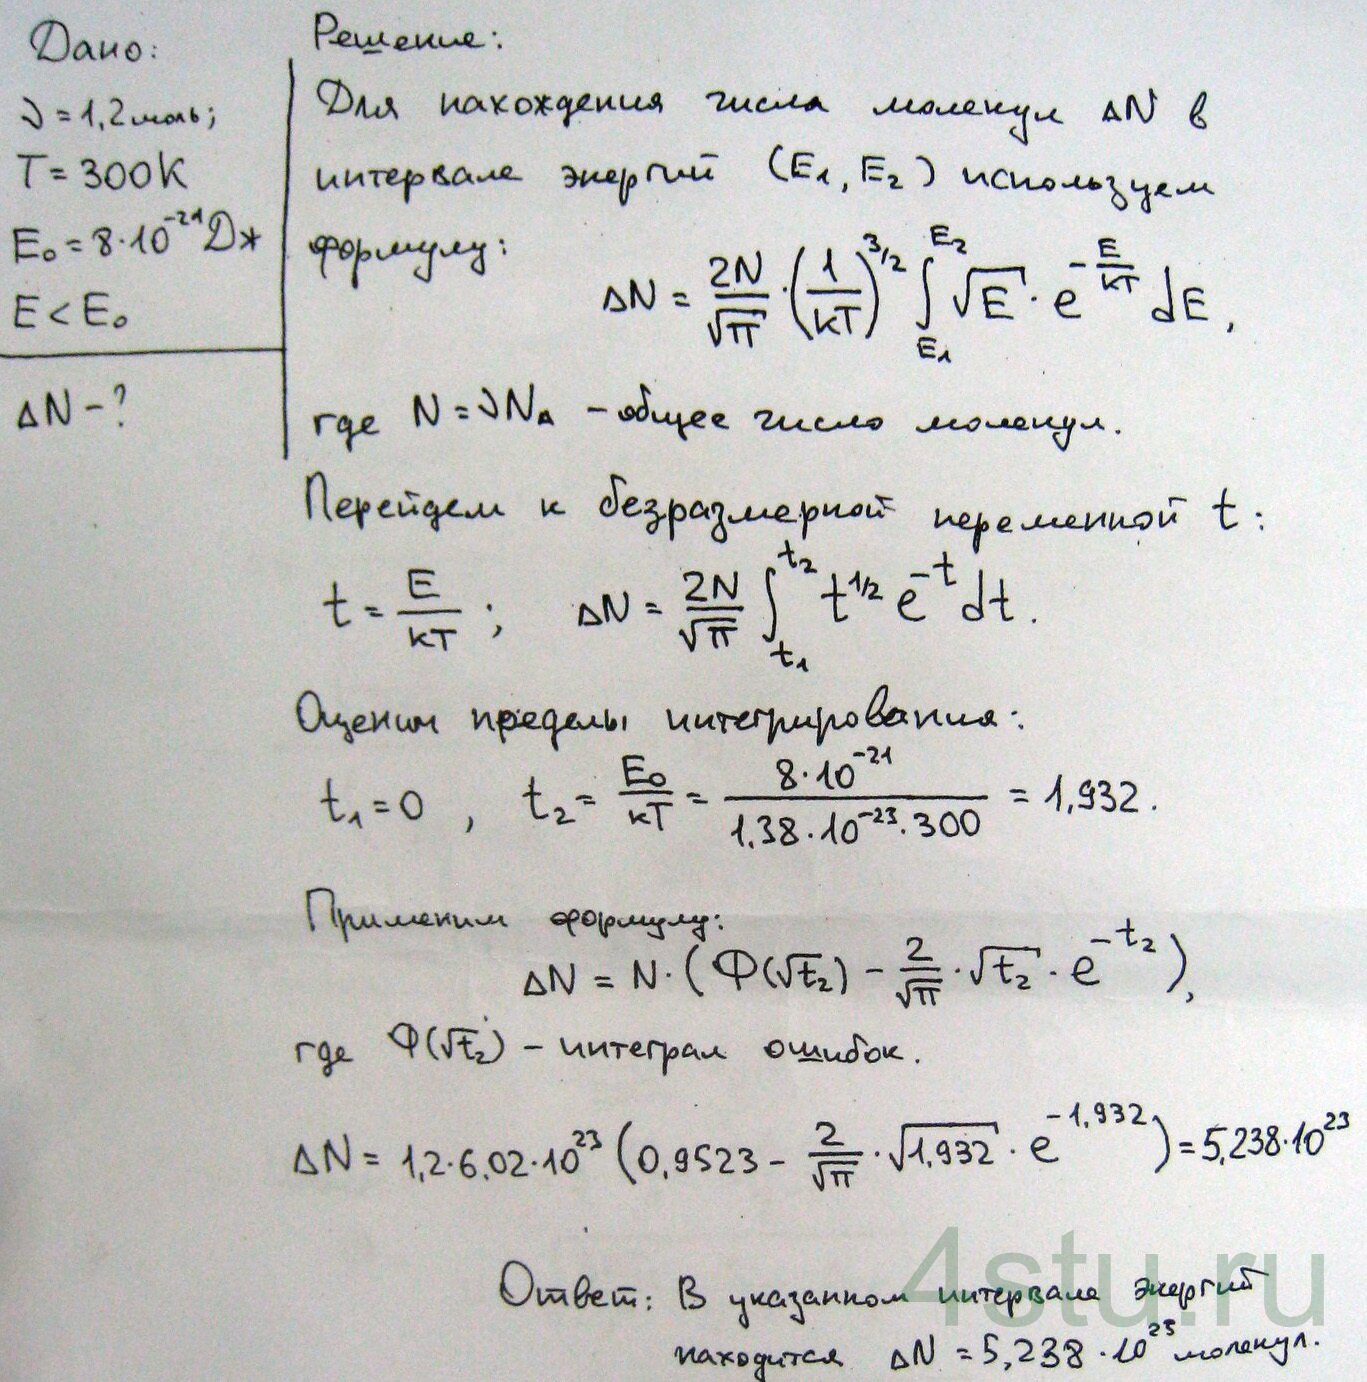 Дано:
ν = 1,2 моль;
T = 300К
E₀ = 8·10⁻²¹ Дж
E < E₀
ΔN - ?
Решение:
Для нахождения числа молекул ΔN в
интервале энергий (E₁, E₂) используем
формулу:
ΔN = 2N/√π · (1/kT)^(3/2) ∫_{E₁}^{E₂} √E · e^(-E/kT) dE,
где N = νN_A - общее число молекул.
Перейдем к безразмерной переменной t:
t = E/kT ; ΔN = 2N/√π ∫_{t₁}^{t₂} t^(1/2) e^(-t) dt.
Оценим пределы интегрирования:
t₁ = 0 , t₂ = E₀/kT = 8·10⁻²¹/1,38·10⁻²³·300 = 1,932.
Применим формулу:
ΔN = N·(Φ(√t₂) - 2/√π · √t₂ · e^(-t₂)),
где Φ(√t₂) - интеграл ошибок.
ΔN = 1,2·6,02·10²³ (0,9523 - 2/√π · √1,932 · e^(-1,932)) = 5,238·10²³
Ответ: В указанном интервале энергий
находится ΔN = 5,238·10²³ молекул.
4stu.ru